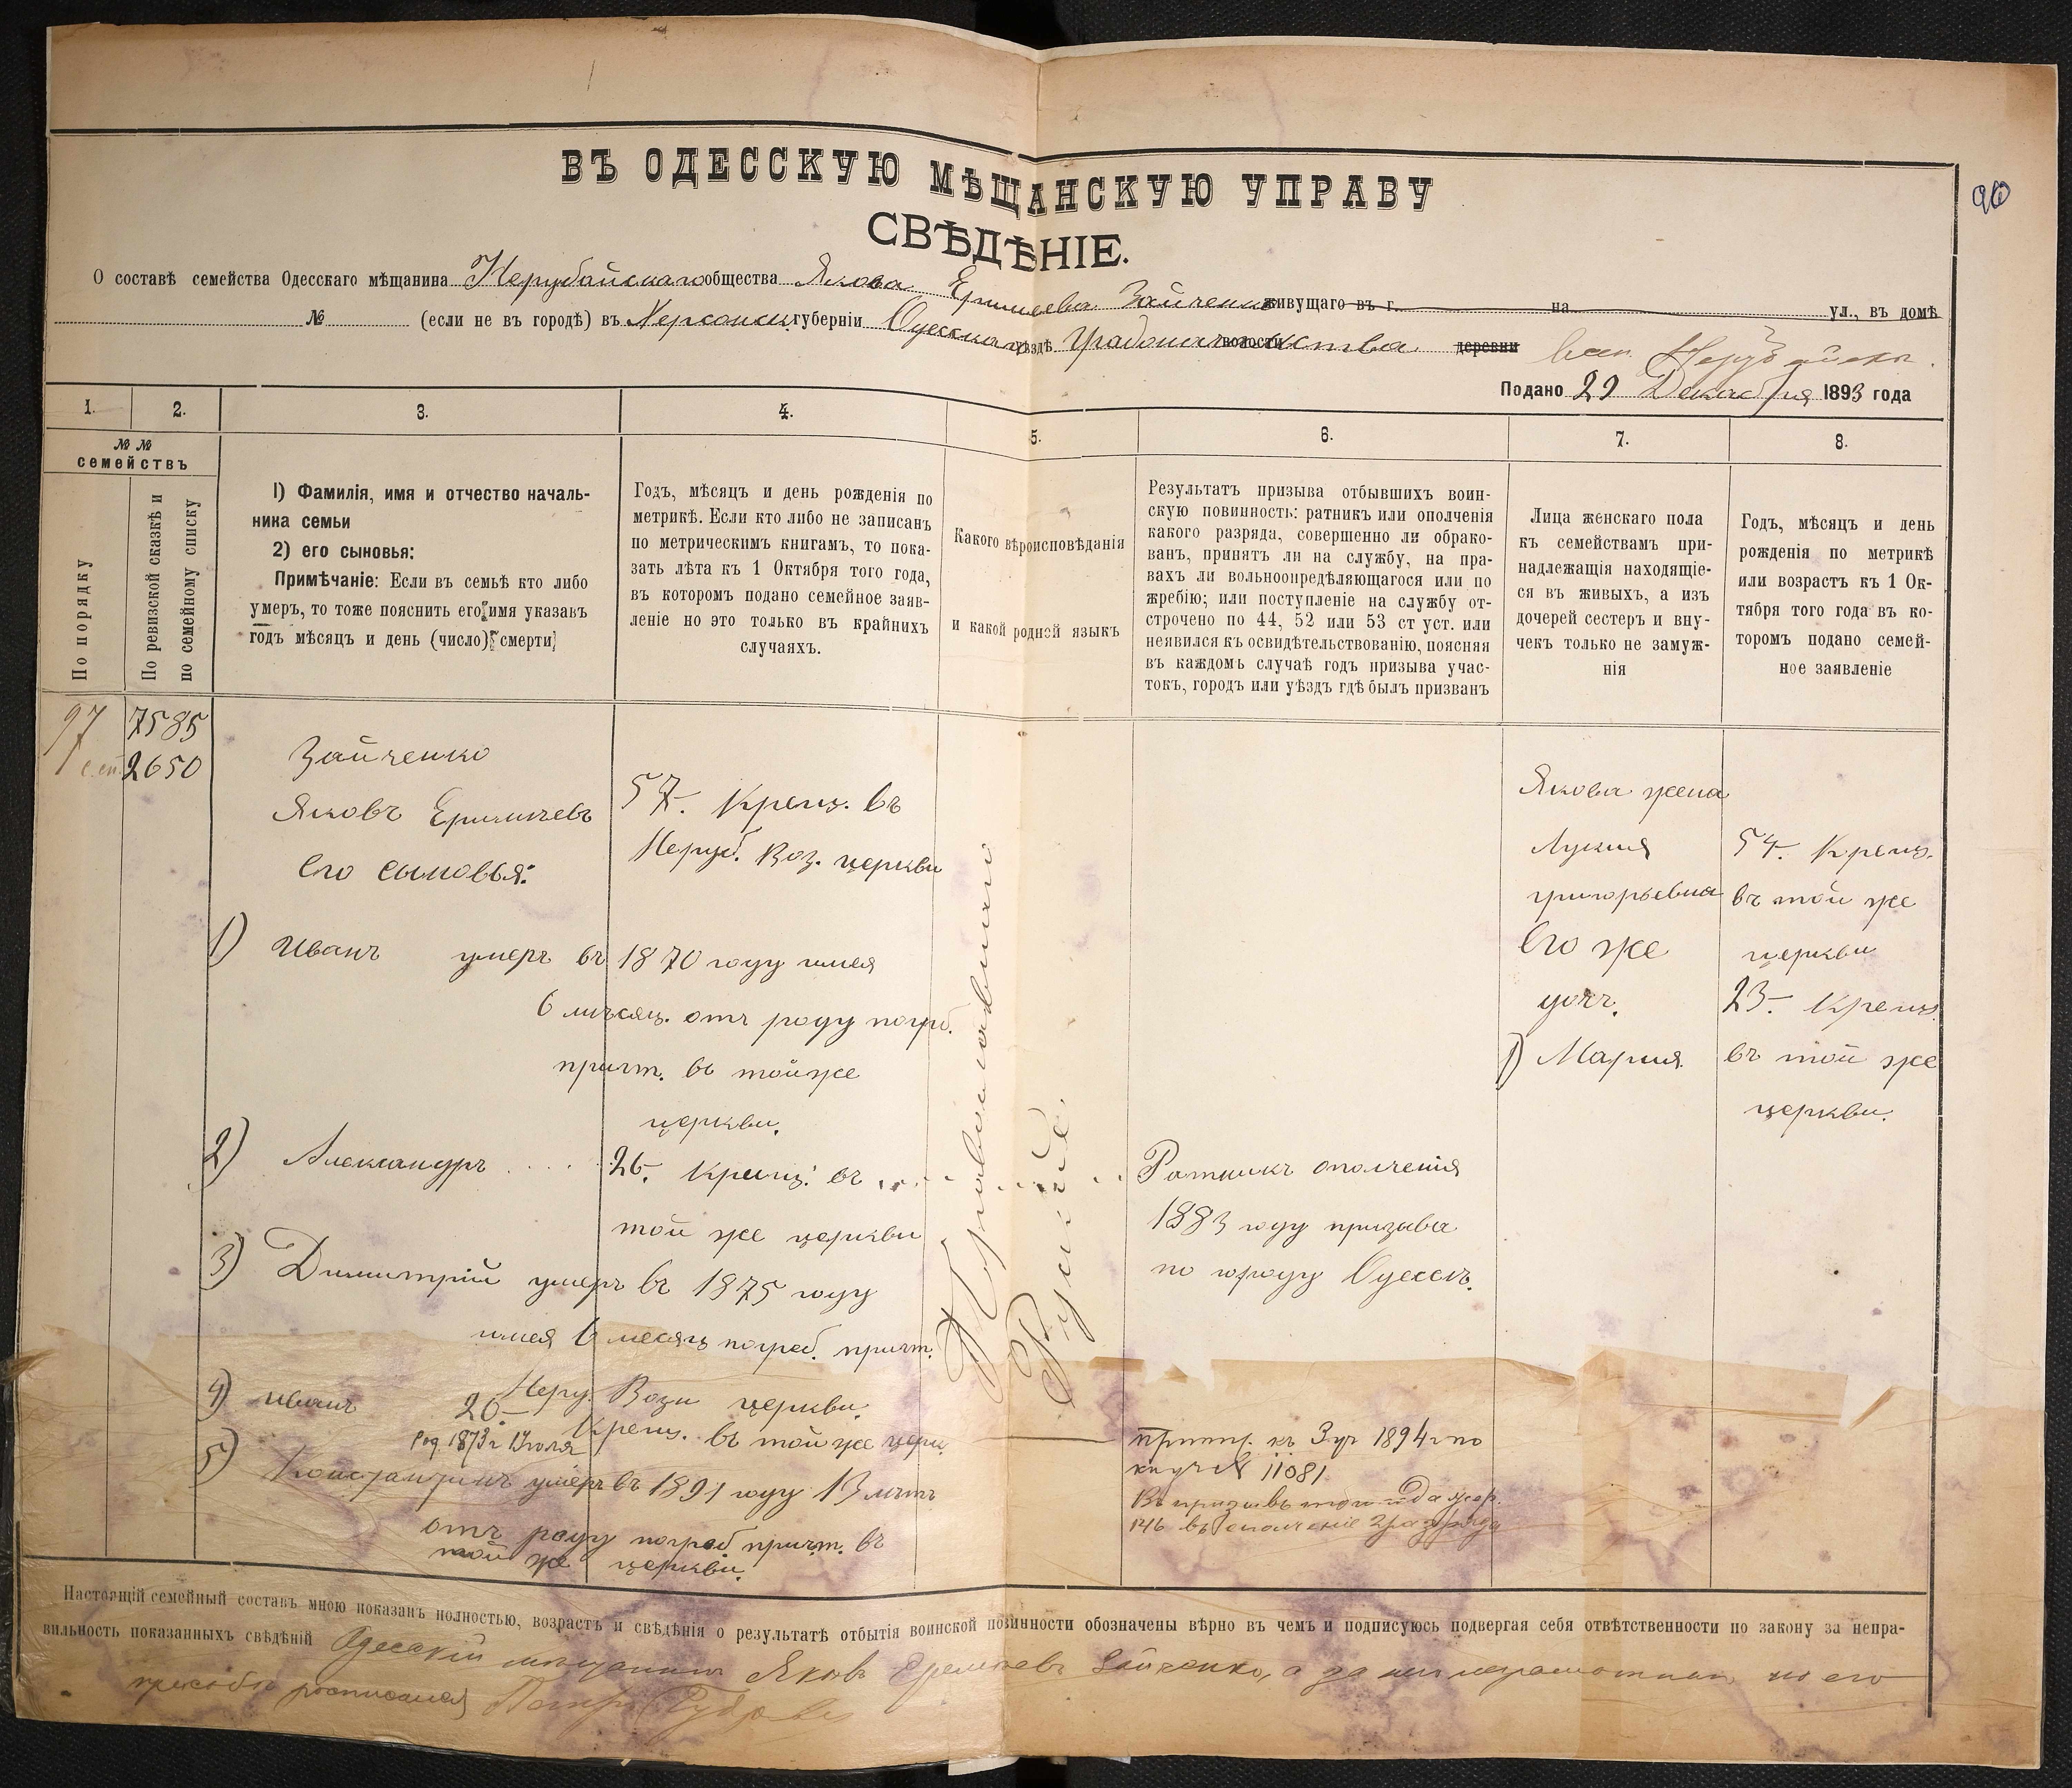 90
ВЪ ОДЕССКУЮ МѢЩАНСКУЮ УПРАВУ
СВѢДѢНІЕ.
О составѣ семейства Одесскаго мѣщанина Нерубайскаго общества Якова Зайченко живущаго въ г. на ул., въ домѣ
№ (если не въ городѣ) въ Херсонск. губерніи Одесскаго уѣздѣ Градоначальства волости деревни
Подано 29 Декабря 1893 года
1. 2. 3. 4. 5. 6. 7. 8.
№ №
семействъ
По порядку
По ревизской сказкѣ и
по семейному списку
1) Фамилія, имя и отчество началь-
ника семьи
2) его сыновья:
Примѣчаніе: Если въ семьѣ кто либо
умеръ, то тоже пояснить его имя указавъ
годъ мѣсяцъ и день (число) смерти
Годъ, мѣсяцъ и день рожденія по
метрикѣ. Если кто либо не записанъ
по метрическимъ книгамъ, то пока-
зать лѣта къ 1 Октября того года,
въ которомъ подано семейное заяв-
леніе но это только въ крайнихъ
случаяхъ.
Какого вѣроисповѣданія
и какой родной языкъ
Результатъ призыва отбывшихъ воин-
скую повинность: ратникъ или ополченія
какого разряда, совершенно ли обрако-
ванъ, принятъ ли на службу, на пра-
вахъ ли вольноопредѣляющагося или по
жребію; или поступленіе на службу от-
строчено по 44, 52 или 53 ст уст. или
неявился къ освидѣтельствованію, поясняя
въ каждомъ случаѣ годъ призыва учас-
токъ, городъ или уѣздъ гдѣ былъ призванъ
Лица женскаго пола
къ семействамъ при-
надлежащія находящіе-
ся въ живыхъ, а изъ
дочерей сестеръ и вну-
чекъ только не замуж-
нія
Годъ, мѣсяцъ и день
рожденія по метрикѣ
или возрастъ къ 1 Ок-
тября того года въ ко-
торомъ подано семей-
ное заявленіе
97
7585
2650
Зайченко
Яковъ
его сыновья:
57. Крещ. въ
Неруб. Воз. церкви
1) Иванъ умеръ въ 1870 году имея
6 мѣсяц. отъ роду погреб.
причт. въ той же
церкви.
2) Александръ
26. Крещ. въ
той же церкви
3) Димитрій умеръ въ 1875 году
имея 6 месяц погреб. причт.
Неру. Возн церкви.
4) Иванъ 20. Крещ. въ той же церк.
Род. 1873 г.
5) Константинъ умеръ въ 1891 году 13 лѣтъ
отъ роду погреб причт. въ
той же церкви.
Православнаго
Русские.
Ратникъ ополченія
1883 году призыва
по городу Одессѣ.
къ 3 уч 1894 г по
№ 11081
146 въ ополченіе
Якова жена
Лукия
григорьевна
его же
доч.
1) Мария.
54. Крещ.
въ той же
церкви
23. Крещ.
въ той же
церкви.
Настоящій семейный составъ мною показанъ полностью, возрастъ и свѣдѣнія о результатѣ отбытія воинской повинности обозначены вѣрно въ чемъ и подписуюсь подвергая себя отвѣтственности по закону за непра-
вильность показанныхъ свѣдѣній Одесскій мѣщанинъ Яковъ Зайченко, а за него неграмотнаго по его
просьбѣ росписался